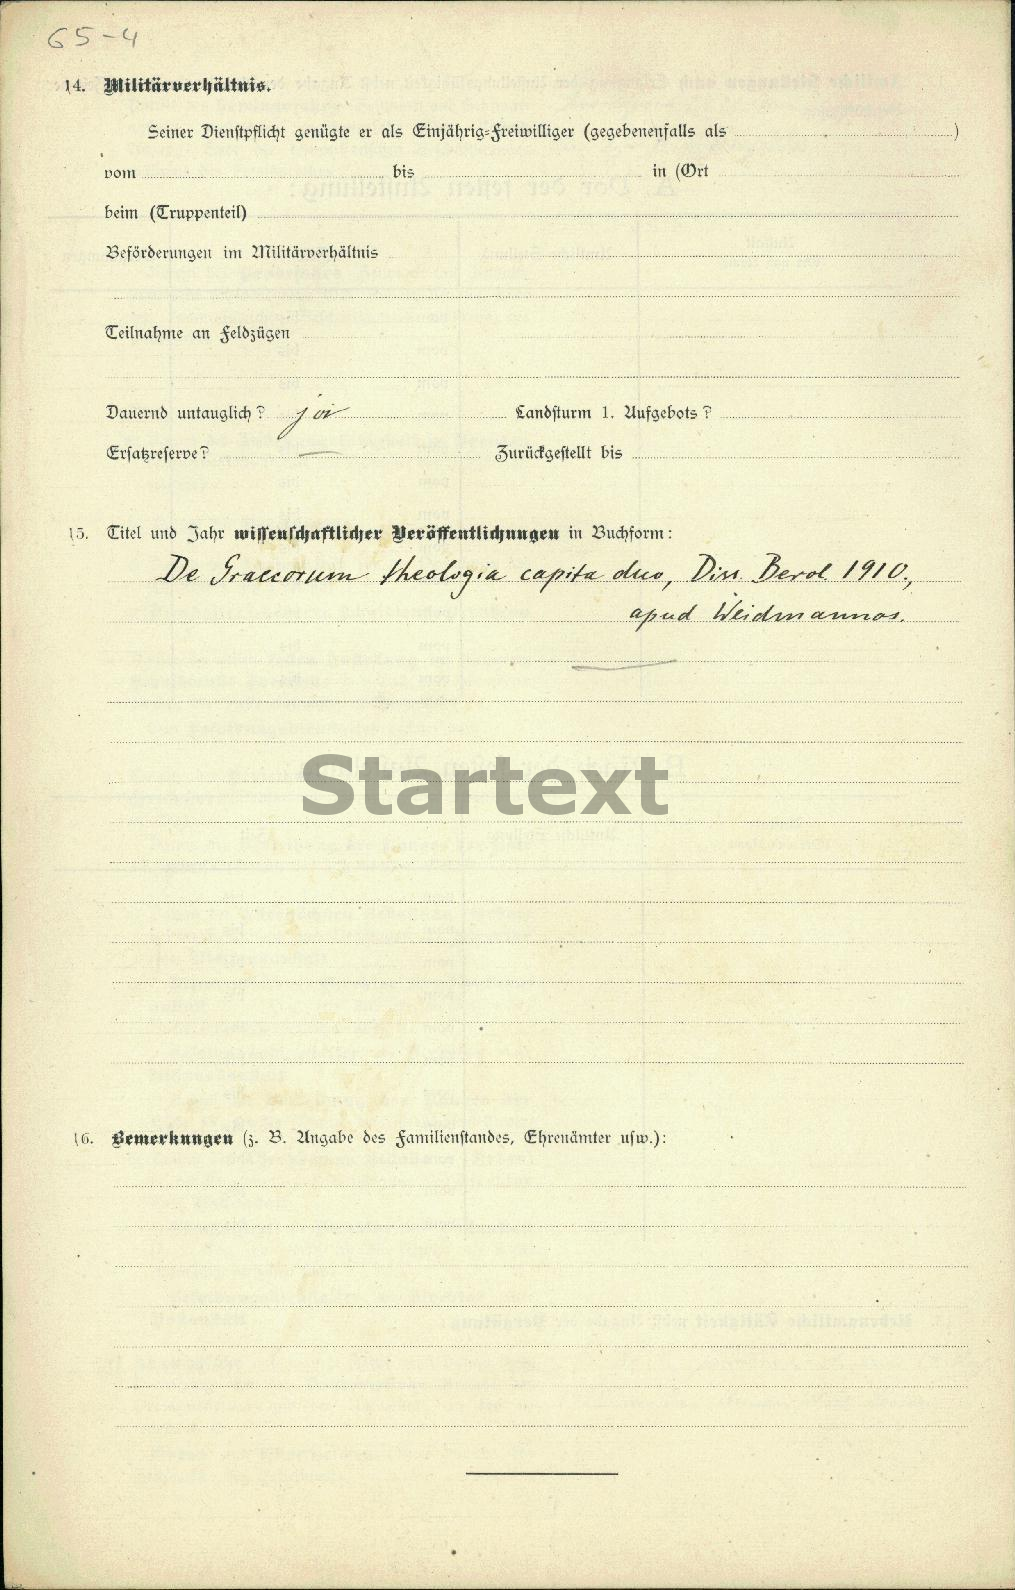 65-4
14. Militärverhältnis.
Seiner Dienstpflicht genügte er als Einjährig=Freiwilliger (gegebenenfalls als )
vom bis in (Ort
beim (Truppenteil)
Beförderungen im Militärverhältnis
Teilnahme an Feldzügen
Dauernd untauglich? ja Landsturm 1. Aufgebots?
Ersatzreserve? — Zurückgestellt bis
15. Titel und Jahr wissenschaftlicher Veröffentlichungen in Buchform:
De Graecorum theologia capita duo, Diss. Berol. 1910.,
apud Weidmannos.
Startext
16. Bemerkungen (z. B. Angabe des Familienstandes, Ehrenämter usw.):